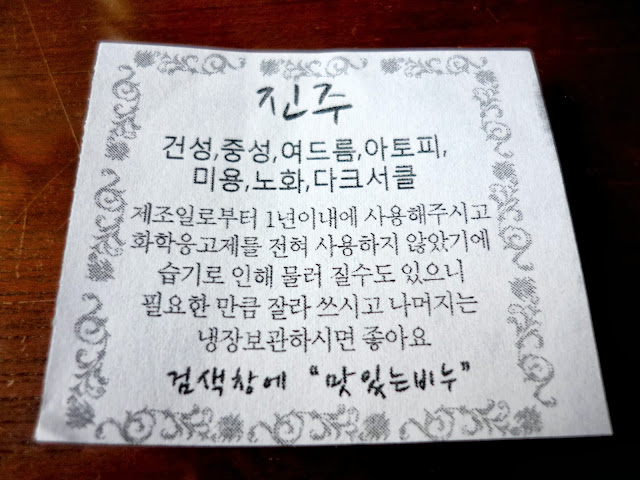 진주
건성,중성,여드름,아토피,
미용,노화,다크서클
제조일로부터 1년이내에 사용해주시고
화학응고제를 전혀 사용하지 않았기에
습기로 인해 물러 질수도 있으니
필요한 만큼 잘라 쓰시고 나머지는
냉장보관하시면 좋아요
검색창에 "맛있는비누"